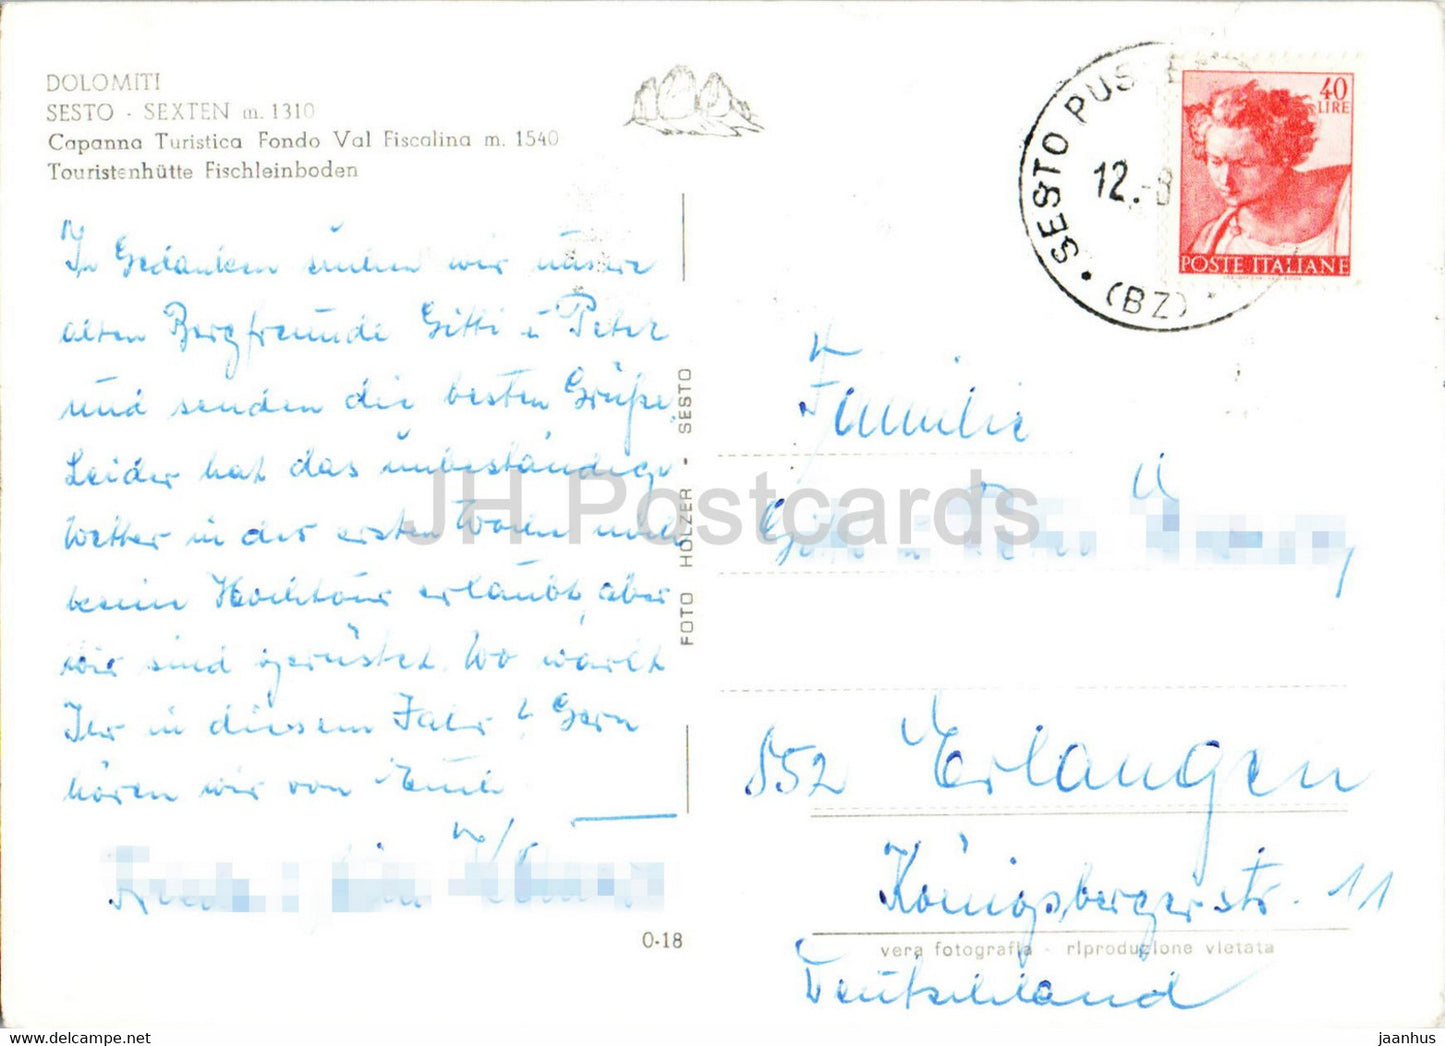 DOLOMITI
SESTO - SEXTEN m. 1310
Capanna Turistica Fondo Val Fiscalina m. 1540
Touristenhütte Fischleinboden
In Gedanken suchen wir unsere
alten Bergfreunde Gitti u Peter
und senden die besten Grüße.
Leider hat das unbeständige
Wetter in der ersten Woche noch
keine Hochtour erlaubt, aber
wir sind gerüstet. Wo wart
Ihr in diesem Jahr? Gern
hören wir von Euch
0-18
FOTO HOLZER • SESTO
SESTO PUS
12.-8
(BZ)
40
LIRE
POSTE ITALIANE
Familie
852 Erlangen
Königsbergerstr. 11
vera fotografia - riproduzione vietata
Deutschland
JH Postcards
https://www.hippostcard.com/store/jaanhus
jaanhus